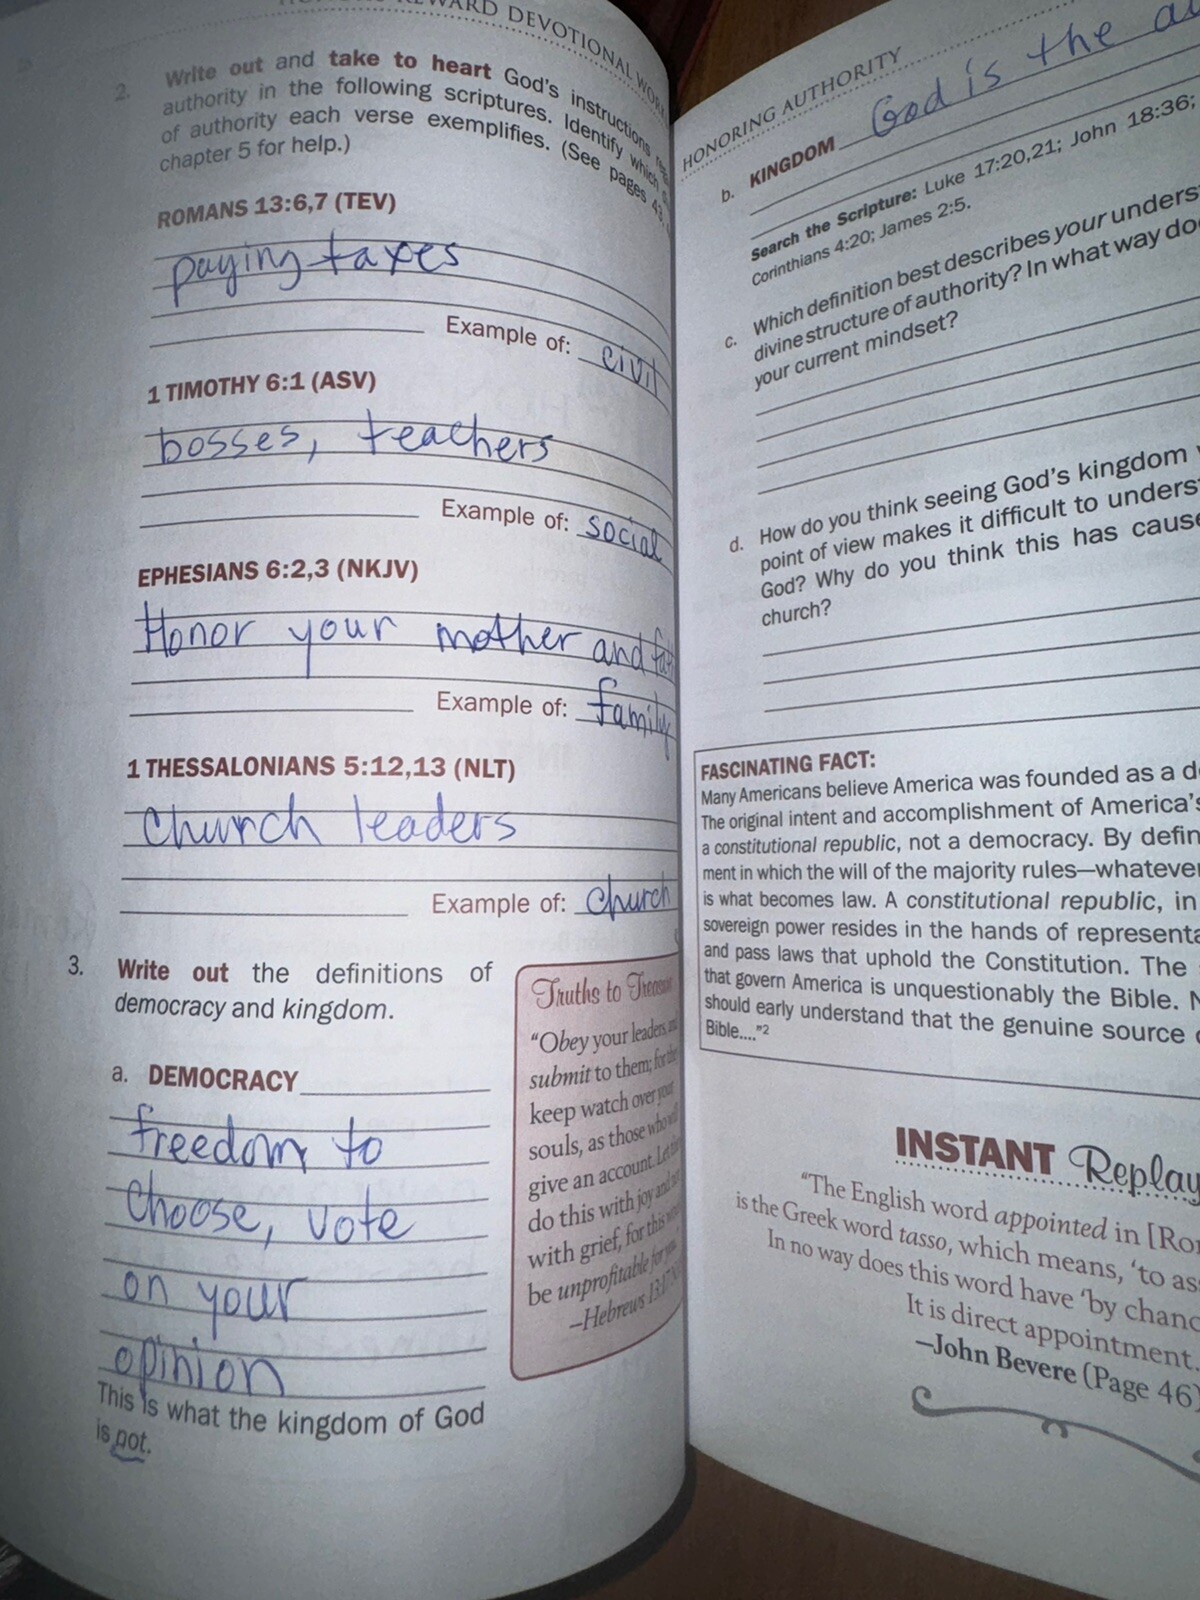 REWARD DEVOTIONAL WORK
2. Write out and take to heart God's instructions
authority in the following scriptures. Identify which
of authority each verse exemplifies. (See pages 43,
chapter 5 for help.)
ROMANS 13:6,7 (TEV)
paying taxes
Example of: civil
1 TIMOTHY 6:1 (ASV)
bosses, teachers
Example of: social
EPHESIANS 6:2,3 (NKJV)
Honor your mother and
Example of: family
1 THESSALONIANS 5:12,13 (NLT)
church leaders
Example of: church
3. Write out the definitions of
democracy and kingdom.
a. DEMOCRACY
freedom to
choose, vote
on your
opinion
This is what the kingdom of God
is not.
Truths to Treasure
"Obey your leaders, and
submit to them; for the
keep watch over your
souls, as those who will
give an account. Let
do this with joy and
with grief, for this
be unprofitable for
–Hebrews 13:17
HONORING AUTHORITY
b. KINGDOM God is the
Search the Scripture: Luke 17:20,21; John 18:36;
Corinthians 4:20; James 2:5.
c. Which definition best describes your
divine structure of authority? In what way do
your current mindset?
d. How do you think seeing God's kingdom
point of view makes it difficult to
God? Why do you think this has
church?
FASCINATING FACT:
Many Americans believe America was founded as a
The original intent and accomplishment of America's
a constitutional republic, not a democracy. By
ment in which the will of the majority rules—whatever
is what becomes law. A constitutional republic, in
sovereign power resides in the hands of
and pass laws that uphold the Constitution. The
that govern America is unquestionably the Bible.
should early understand that the genuine source
Bible...."2
INSTANT Replay
"The English word appointed in
is the Greek word tasso, which means, 'to
In no way does this word have 'by
It is direct appointment.
–John Bevere (Page 46)